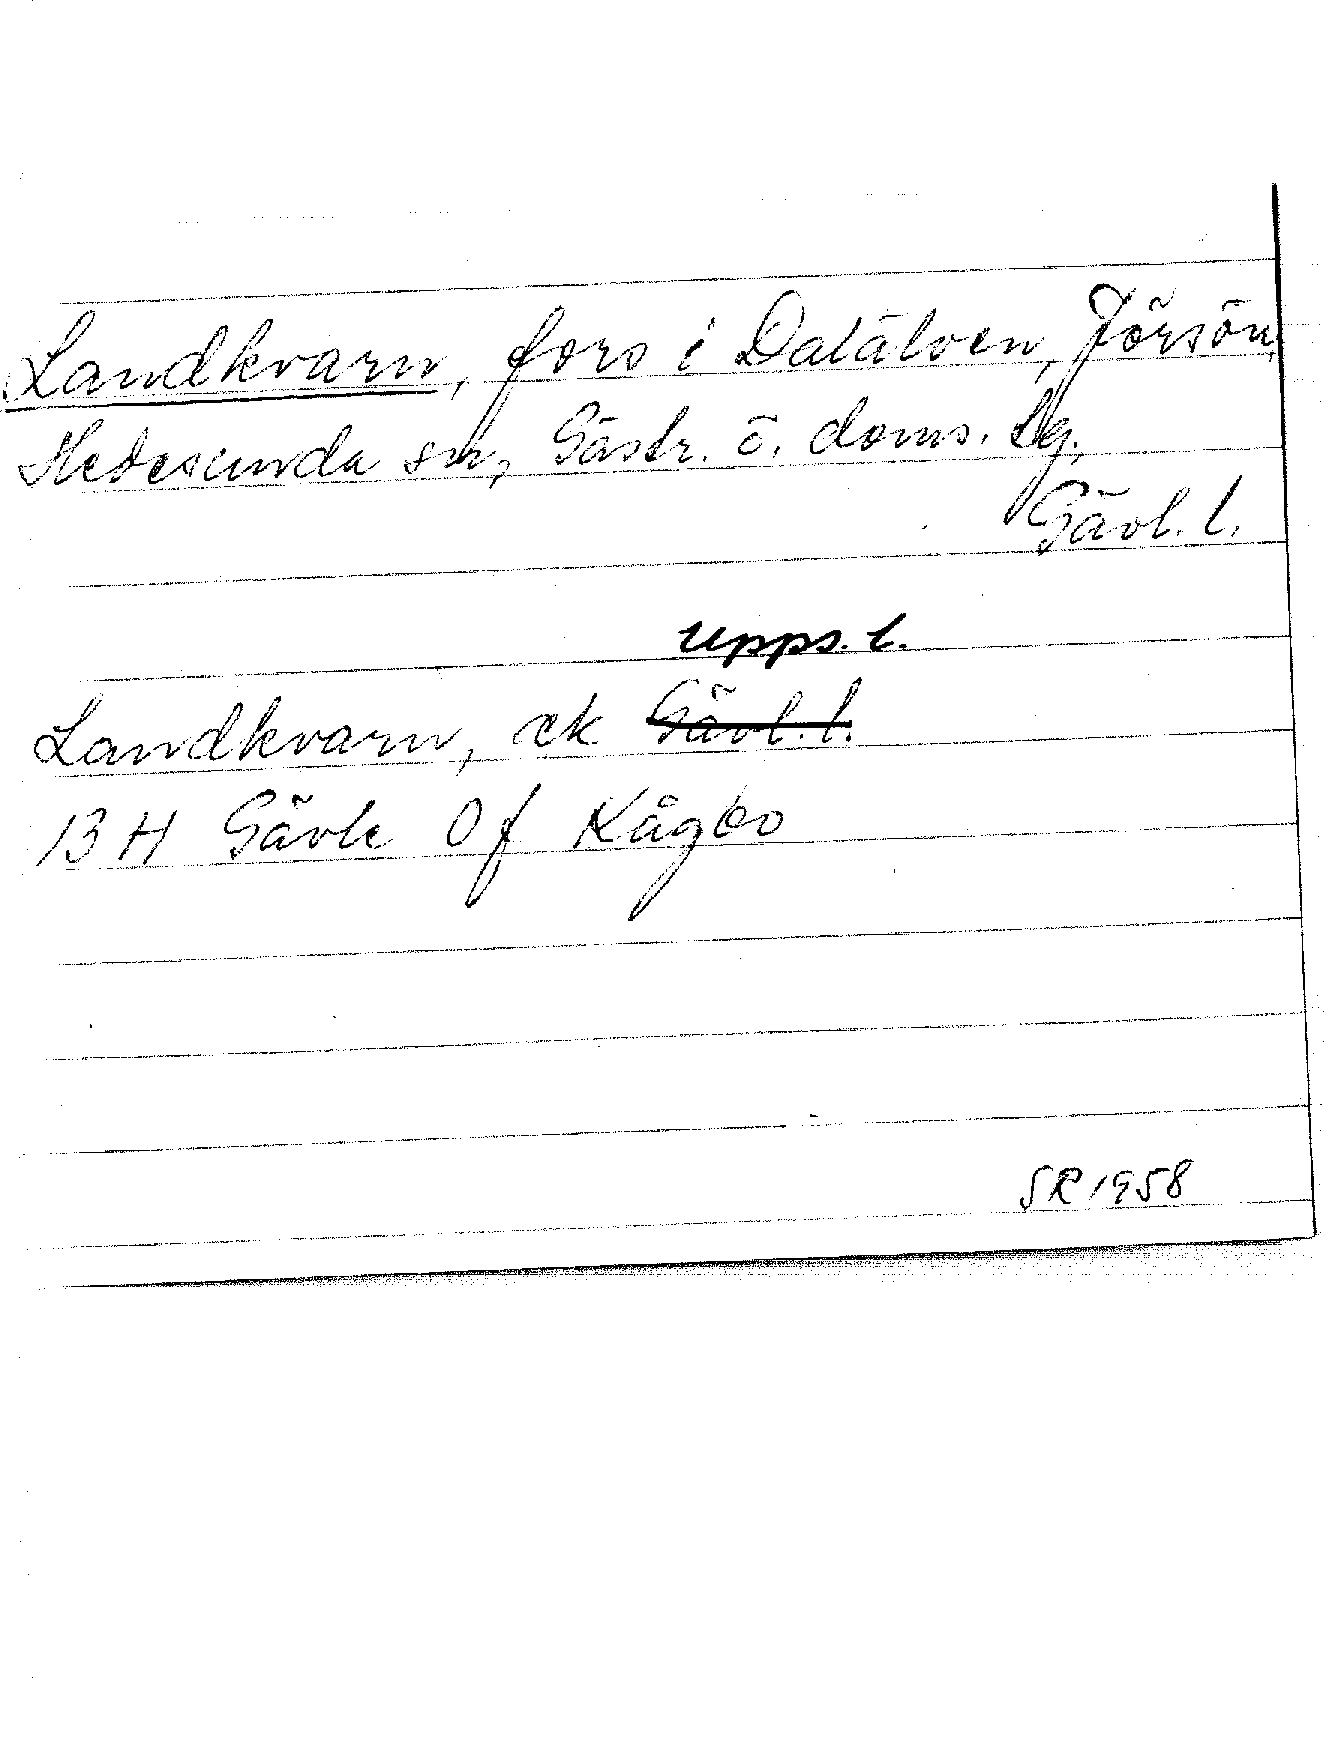 Landkvarn, fors i Dalälven, Jörsön,
Hedesunda sn, Gästr. ö. doms. tg.
Gävl. l.
Upps. l.
Landkvarn, ek Gävl. l.
13 H Gävle 0 f Kågbo
SR 1958